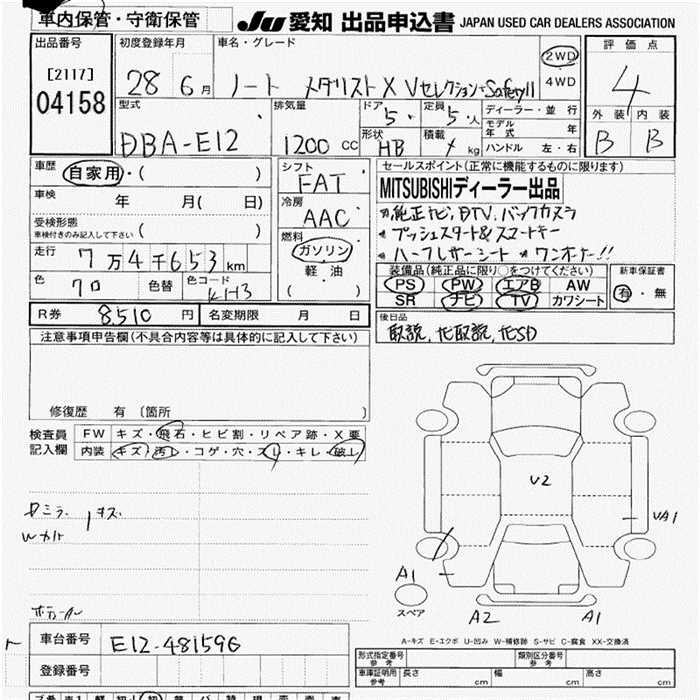 車内保管・守衛保管
JU 愛知 出品申込書 JAPAN USED CAR DEALERS ASSOCIATION
出品番号 初度登録年月 車名・グレード 2WD 評価点
[2117] 28 6月 ノート メダリスト X Vセレクション+SafetyII 4WD 4
04158
型式 排気量 ドア 5 定員 5人 ディーラー・並行 外装 内装
DBA-E12 1200 cc 形状 HB 積載 kg モデル年式 年 B B
ハンドル 左・右
車歴 自家用・( ) シフト FAT セールスポイント(正常に機能するものに限ります)
車検 年 月( 日) 冷房 AAC MITSUBISHIディーラー出品
純正ナビ, DTV, バックカメラ
受検形態 車検付きのみ記入して下さい ( ) 燃料 プッシュスタート& スマートキー
走行 7万4千653km ガソリン ハーフレザーシート ワンオーナー!!
色 クロ 色替 色コード KH3 軽・油 ( )
装備品(純正品に限り○をつけてください) 新車保証書
PS PW エアB AW 有・無
SR ナビ TV カワシート
R券 8,510 円 名変期限 月 日 後日品
取説, ナビ取説, ナビSD
注意事項申告欄(不具合内容等は具体的に記入して下さい)
修復歴 有 (箇所 )
検査員 FW キズ・飛石・ヒビ割・リペア跡・X要
記入欄 内装 キズ・汚レ・コゲ・穴・スレ・キレ・破レ
V2
VA1
A1
スペア
A2 A1
A-キズ E-エクボ U-凹み W-補修跡 S-サビ C-腐食 XX-交換済
車台番号 E12-481596
登録番号
形式指定番号 参考 類別区分番号 参考
車庫証明用 参考 長さ cm 幅 cm 高さ cm